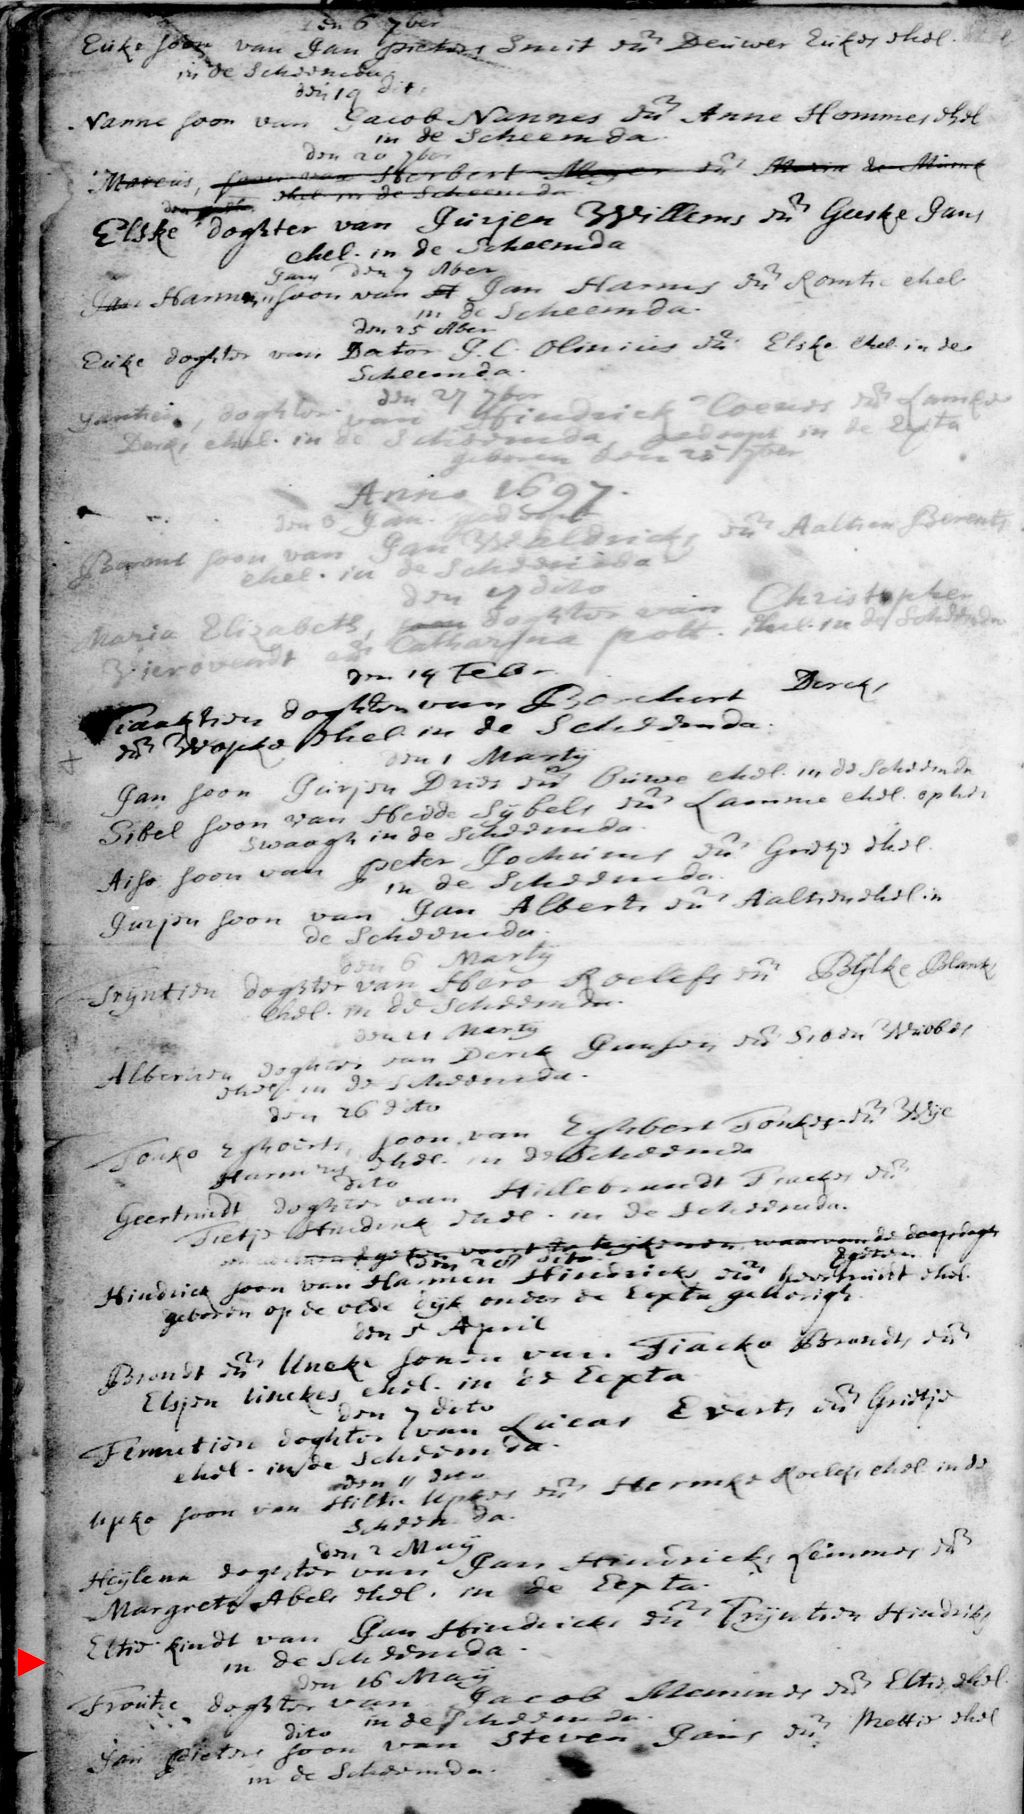 den 6 7ber
Euke soon van Jan Pieters Smit eñ Deuwer Eukes ehel.
in de Scheemda
den 19 dito
Nanne soon van Jacob Nannes eñ Anne Hommes ehel
in de Scheemda
den 20 7ber
Marcus, soon van Herbert Meyer eñ Maria de Minne
ehel in de Scheemda
Elske doghter van Jurjen Willems eñ Geeske Jans
ehel. in de Scheemda
den 7 Aber
Jan Harmens soon van Jan Harms eñ Romtie ehel
in de Scheemda.
den 25 Aber
Euke doghter van Dator J. C. Olinius eñ Elske ehel in de
Scheemda.
den 27 7ber
doghter van Hindrick Coenes eñ Lamke
Derks ehel. in de Scheemda, gedoopt in de Eexta
geboren den 25 7ber
Anno 1697.
den 3 Jan. gedoopt
Berent soon van Jan Weldricks eñ Aaltien Berents
ehel. in de Scheemda
den 17 dito
Maria Elizabeth, doghter van Christopher
eñ Catharina pott. ehel. in de Scheemda
den 14 Febr.
Tiaaktien doghter van Borchert Dercks
eñ Wopke ehel. in de Scheemda.
den 1 Martij
Jan soon Jurjen Dries eñ Ouwe ehel. in de Scheemda
Sibel soon van Hedde Sijbels eñ Lamme ehel. op het
Swaagh in de Scheemda.
Aiso soon van Peter Jochums eñ Grietje ehel.
in de Scheemda.
Jurjen soon van Jan Alberts eñ Aaltien ehel. in
de Scheemda.
den 6 Martij
Trijntien doghter van Haro Roelefs eñ Bijlke Blanks
ehel. in de Scheemda.
den 11 Martij
Albertien doghter van Derck Jansen eñ Sioen Wiobes
ehel. in de Scheemda.
den 26 dito
Tonko Eghberts, soon van Eghbert Tonkes eñ Wije
Harmens ehel. in de Scheemda
dito
Geertruidt doghter van Hillebrandt Tiackes eñ
Tietje Hindrik ehel. in de Scheemda.
den 28 dito
Hindrick soon van Harmen Hindricks eñ Geertruidt Egberts ehel.
geboren op de olde dijk onder de Eexta gehorigh.
den 5 April
Brondt eñ Uneke sonen van Tiacko Brondts eñ
Elsjen Unekes ehel. in de Eexta
den 7 dito
Femmetien doghter van Lucas Everts eñ Grietje
ehel. in de Scheemda.
den 11 dito
Upko soon van Hiltie Upkes eñ Hermke Roelefs ehel in de
Scheemda.
den 2 Maij
Heijlena doghter van Jan Hindricks Lemmes eñ
Margreta Abels ehel. in de Eexta.
Eltie kindt van Jan Hindricks eñ Trijntien Hindriks
in de Scheemda.
den 16 Maij
Froutie doghter van Jacob Memmes eñ Eltie ehel.
in de Scheemda.
dito
Jan Pieters soon van Steven Jans eñ Mettie ehel
in de Scheemda.